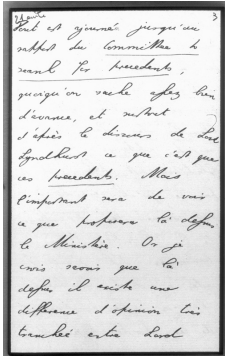 3
tout est ajourné jusqu'au
rapport du Committee to
search for precedents,
quoiqu'on sache assez bien
d'avance, et surtout
d'après le discours de Lord
Lyndhurst ce que c'est que
ces precedents. Mais
l'important sera de voir
ce que proposera là dessus
le Ministère. Or je
crois savoir que là
dessus il existe une
différence d'opinion très
tranchée entre Lord